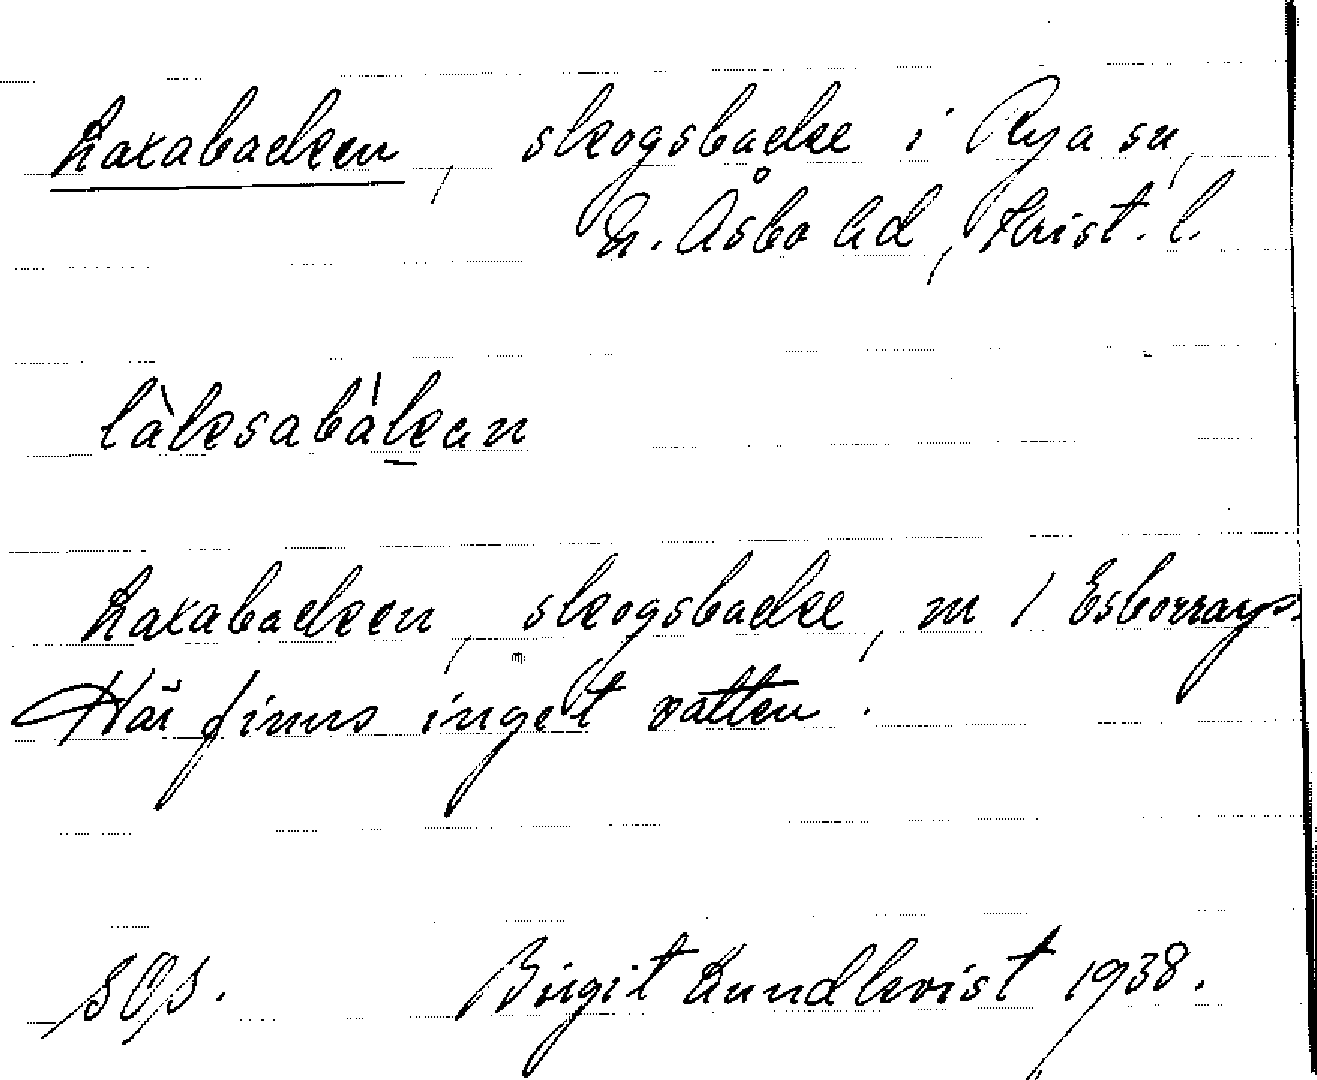 Laxabacken, skogsbacke i Rya sn,
N. Åsbo hd, Krist. l.
làksabàkan
Laxabacken, skogsbacke, m / Esborrarp.
Här finns inget vatten.
SOS. Birgit Lundkvist 1938.